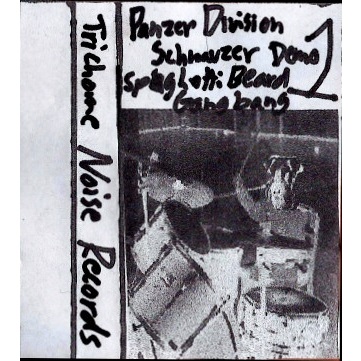 Trichome Noise Records
Panzer Division
Schnauzer Demo 1
Spaghetti Beard
Gangbang